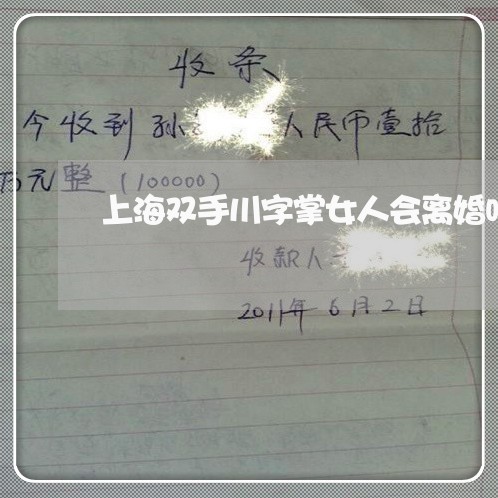 收条
今收到孙 人民币壹拾
万元整(100000)
上海双手川字掌女人会离婚
收款人
2011年6月2日